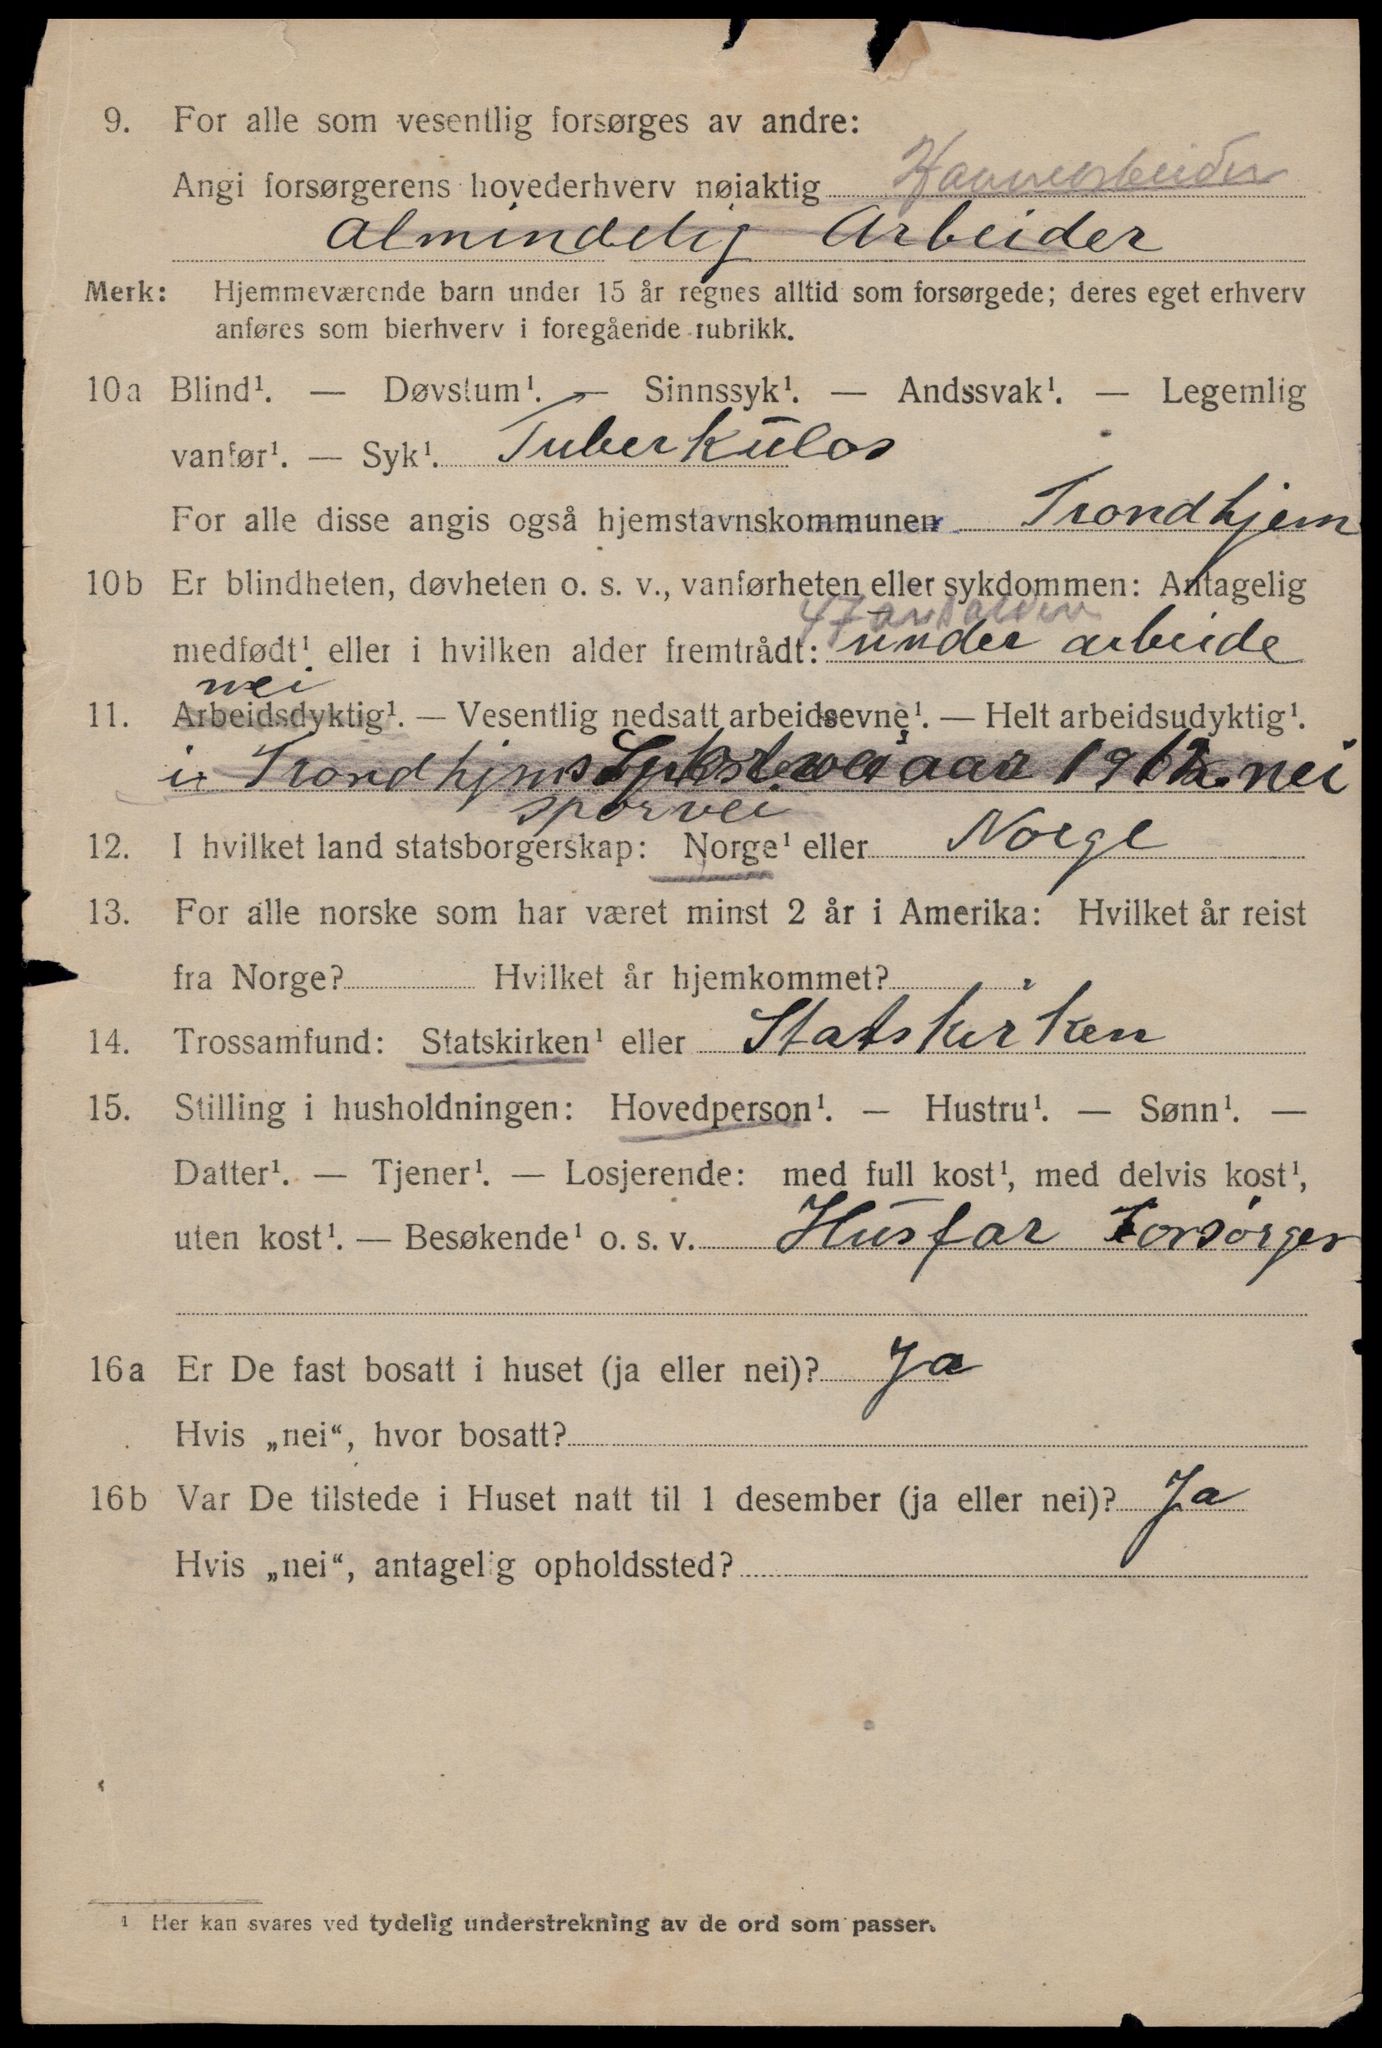 9. For alle som vesentlig forsørges av andre:
Angi forsørgerens hovederhverv nøiaktig Havnearbeider
Almindelig Arbeider
Merk: Hjemmeværende barn under 15 år regnes alltid som forsørgede; deres eget erhverv
anføres som bierhverv i foregående rubrikk.
10a Blind¹. — Døvstum¹. — Sinnssyk¹. — Andssvak¹. — Legemlig
vanfør¹. — Syk¹. Tuberkulos
For alle disse angis også hjemstavnskommunen Trondhjem
10b Er blindheten, døvheten o. s. v., vanførheten eller sykdommen: Antagelig
47
medfødt¹ eller i hvilken alder fremtrådt: under arbeide
nei
11. Arbeidsdyktig¹. — Vesentlig nedsatt arbeidsevne¹. — Helt arbeidsudyktig¹.
i Trondhjms aar nei
sporvei
12. I hvilket land statsborgerskap: Norge¹ eller Norge
13. For alle norske som har været minst 2 år i Amerika: Hvilket år reist
fra Norge? Hvilket år hjemkommet?
14. Trossamfund: Statskirken¹ eller Statskirken
15. Stilling i husholdningen: Hovedperson¹. — Hustru¹. — Sønn¹. —
Datter¹. — Tjener¹. — Losjerende: med full kost¹, med delvis kost¹,
uten kost¹. — Besøkende¹ o. s. v. Husfar Forsørger
16a Er De fast bosatt i huset (ja eller nei)? Ja
Hvis „nei“, hvor bosatt?
16b Var De tilstede i Huset natt til 1 desember (ja eller nei)? Ja
Hvis „nei“, antagelig opholdssted?
¹ Her kan svares ved tydelig understrekning av de ord som passer.